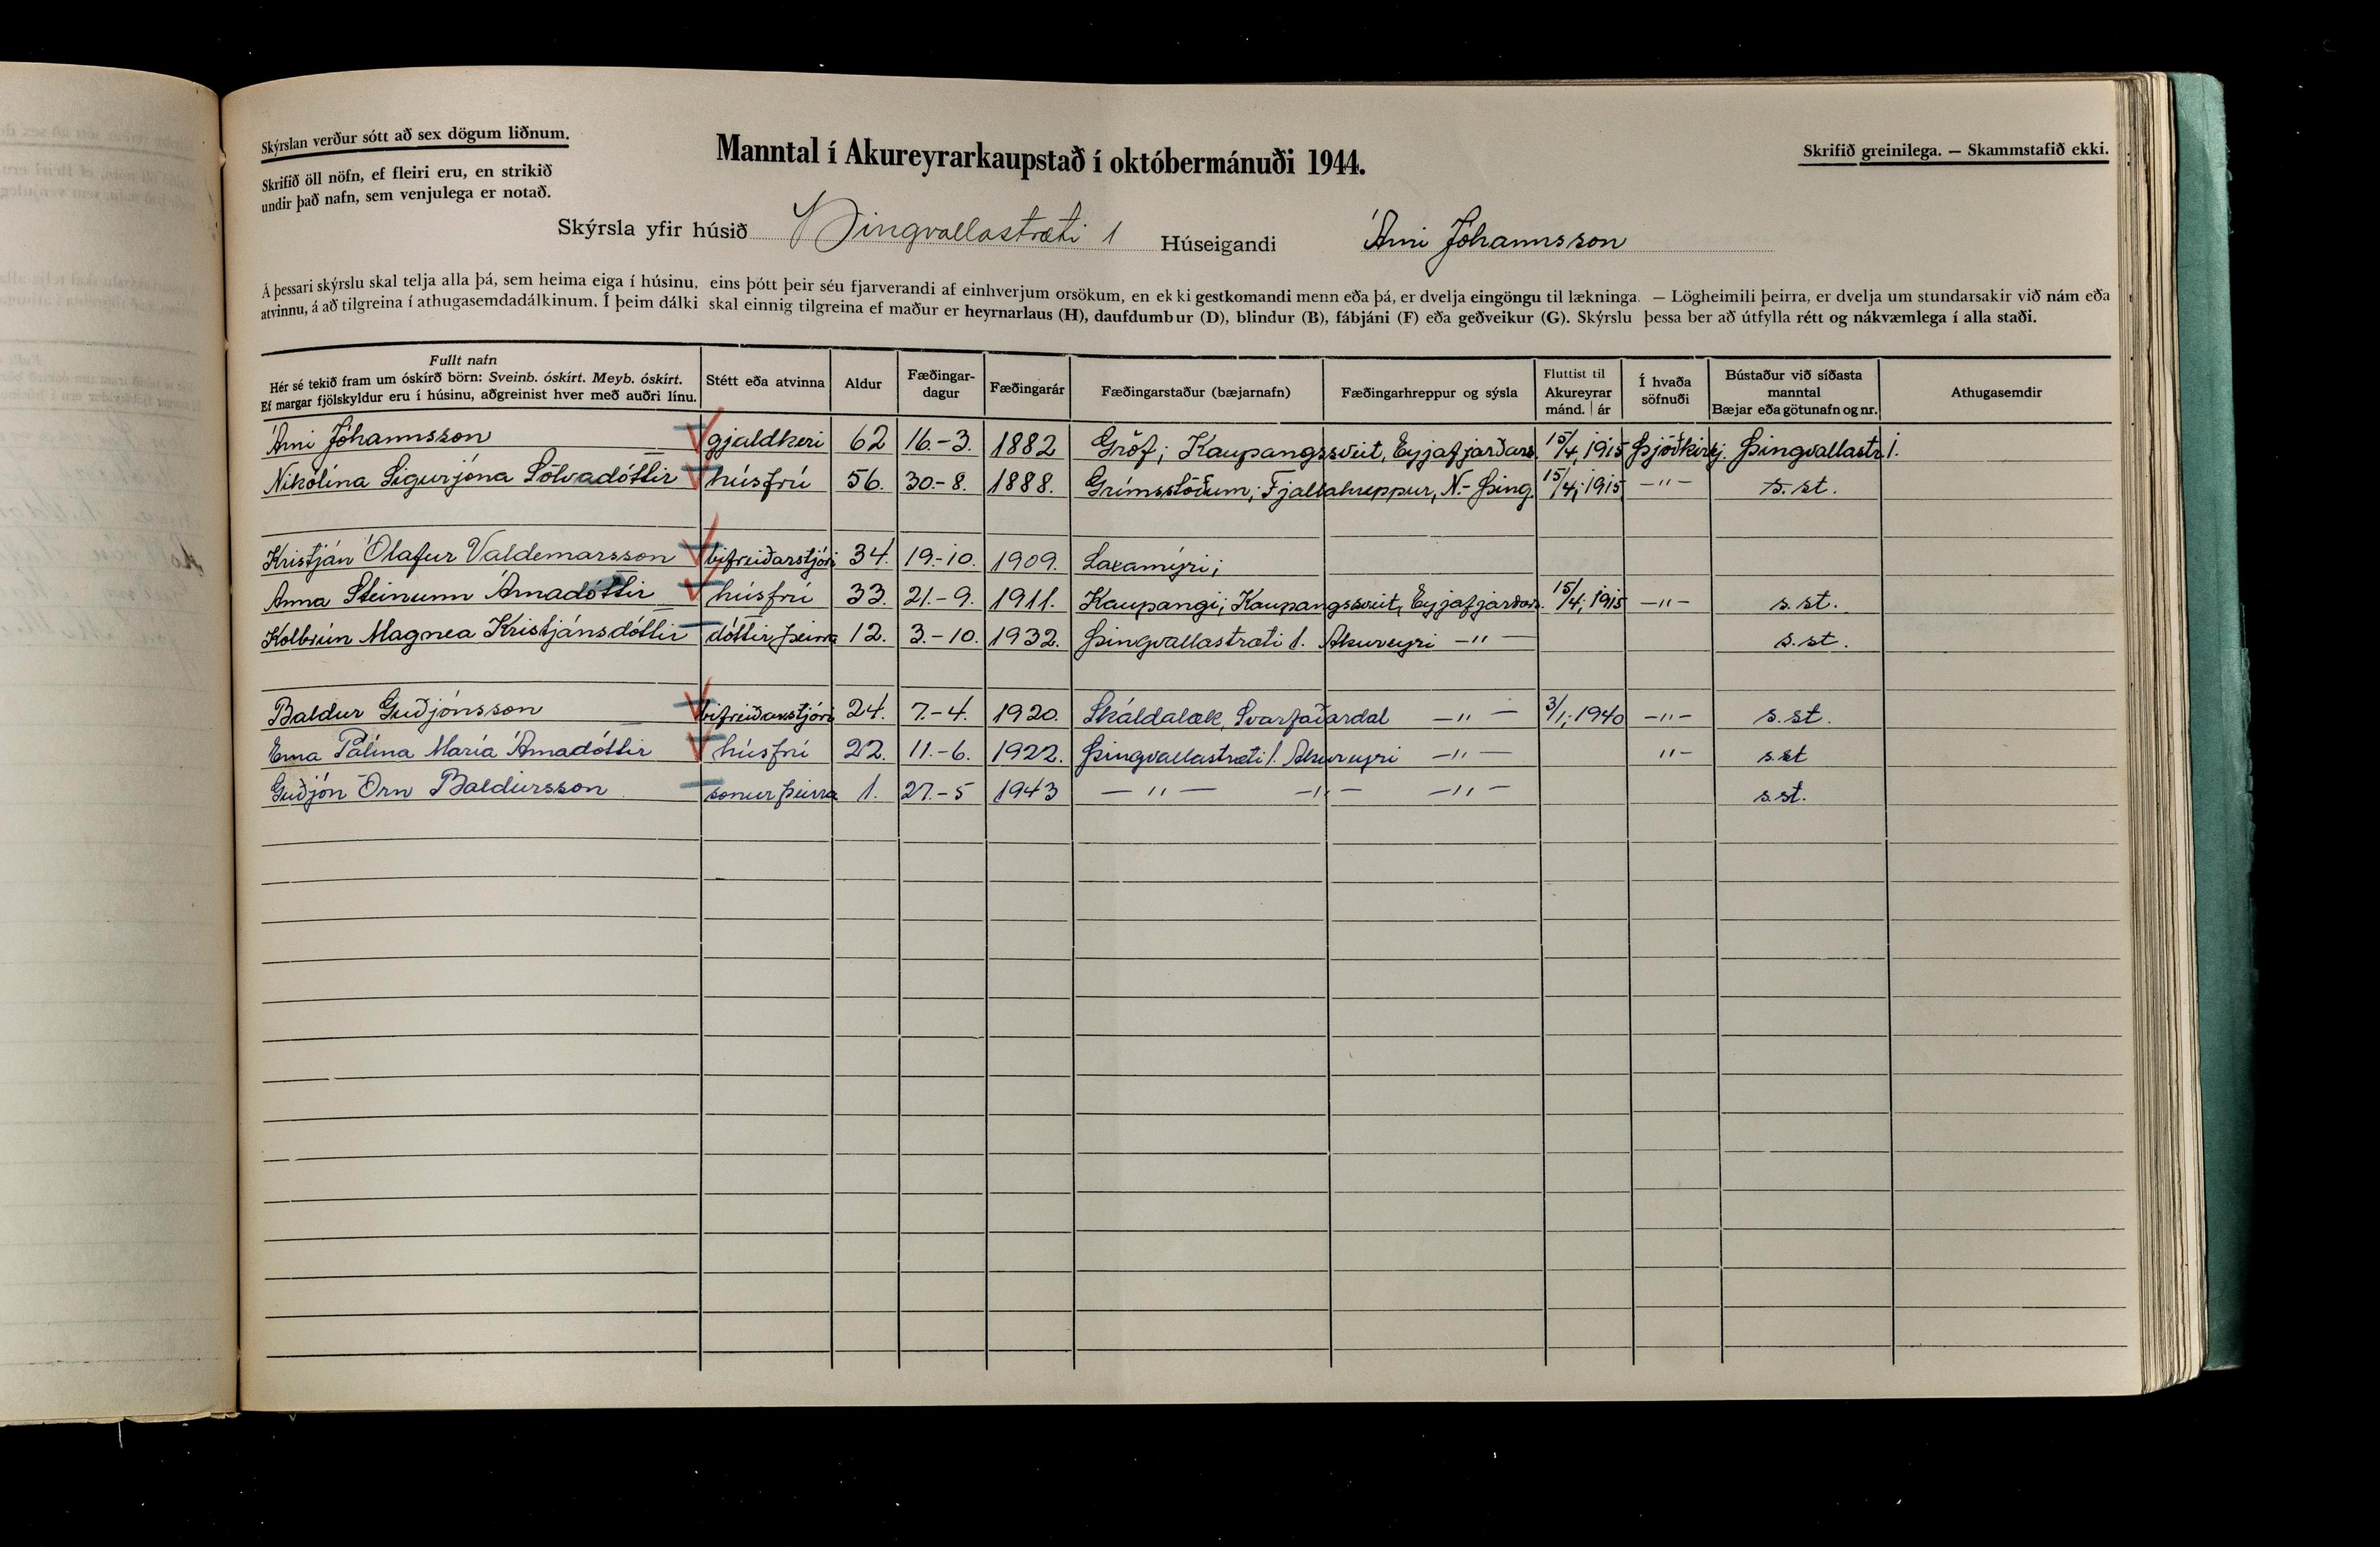 Skýrslan verður sótt að sex dögum liðnum.
Skrifið öll nöfn, ef fleiri eru, en strikið
undir það nafn, sem venjulega er notað.
Manntal í Akureyrarkaupstað í októbermánuði 1944.
Skrifið greinilega. — Skammstafið ekki.
Skýrsla yfir húsið Þingvallastræti 1 Húseigandi Árni Jóhannsson
Á þessari skýrslu skal telja alla þá, sem heima eiga í húsinu, eins þótt þeir séu fjarverandi af einhverjum orsökum, en ekki gestkomandi menn eða þá, er dvelja eingöngu til lækninga. — Lögheimili þeirra, er dvelja um stundarsakir við nám eða
atvinnu, á að tilgreina í athugasemdadálkinum. Í þeim dálki skal einnig tilgreina ef maður er heyrnarlaus (H), daufdumbur (D), blindur (B), fábjáni (F) eða geðveikur (G). Skýrslu þessa ber að útfylla rétt og nákvæmlega í alla staði.
Fullt nafn
Hér sé tekið fram um óskírð börn: Sveinb. óskírt. Meyb. óskírt.
Ef margar fjölskyldur eru í húsinu, aðgreinist hver með auðri línu.
Stétt eða atvinna
Aldur
Fæðingar-
dagur
Fæðingarár
Fæðingarstaður (bæjarnafn)
Fæðingarhreppur og sýsla
Fluttist til
Akureyrar
mánd. ár
Í hvaða
söfnuði
Bústaður við síðasta
manntal
Bæjar eða götunafn og nr.
Athugasemdir
Árni Jóhannsson gjaldkeri 62 16.-3. 1882 Gróf; Kaupangssveit, Eyjafjarðars. 15/4, 1915 Þjóðkirkj. Þingvallastr. 1.
Nikólína Sigurjóna Sölvadóttir húsfrú 56. 30.-8. 1888. Grímsstöðum; Fjallahreppur, N.-Þing. 15/4, 1915 -"- s. st.
Kristján Ólafur Valdemarsson bifreiðarstjóri 34. 19.-10. 1909. Laxamýri;
Anna Steinunn Árnadóttir húsfrú 33. 21.-9. 1911. Kaupangi; Kaupangssveit, Eyjafjarðars. 15/4, 1915 -"- s. st.
Kolbrún Magnea Kristjánsdóttir dóttir þeirra 12. 3.-10. 1932. Þingvallastræti 1. Akureyri -"- s. st.
Baldur Guðjónsson bifreiðarstjóri 24. 7.-4. 1920. Skáldalæk, Svarfaðardal -"- 3/1, 1940 -"- s. st.
Erna Pálína María Árnadóttir húsfrú 22. 11.-6. 1922. Þingvallastræti 1. Akureyri -"- "- s. st
Guðjón Örn Baldursson sonur þeirra 1. 27.-5 1943 -"- -"- -"- s. st.